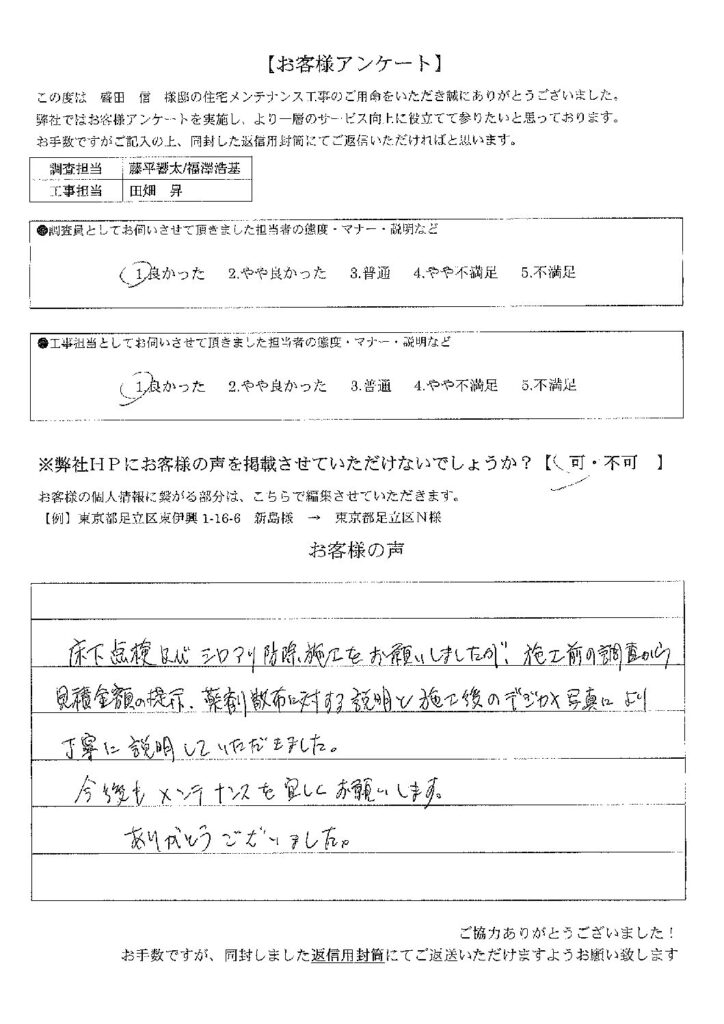 【お客様アンケート】
この度は　盛田　信　様邸の住宅メンテナンス工事のご用命をいただき誠にありがとうございました。
弊社ではお客様アンケートを実施し、より一層のサービス向上に役立てて参りたいと思っております。
お手数ですがご記入の上、同封した返信用封筒にてご返信いただければと思います。
調査担当　藤平響太/福澤浩基
工事担当　田畑　昇
●調査員としてお伺いさせて頂きました担当者の態度・マナー・説明など
1.良かった　2.やや良かった　3.普通　4.やや不満足　5.不満足
●工事担当としてお伺いさせて頂きました担当者の態度・マナー・説明など
1.良かった　2.やや良かった　3.普通　4.やや不満足　5.不満足
※弊社ＨＰにお客様の声を掲載させていただけないでしょうか？【　可・不可　】
お客様の個人情報に繋がる部分は、こちらで編集させていただきます。
【例】東京都足立区東伊興 1-16-6　新島様　→　東京都足立区Ｎ様
お客様の声
床下点検及びシロアリ防除施工をお願いしましたが、施工前の調査から
見積金額の提示、薬剤散布に対する説明と施工後のデジカメ写真により
丁寧に説明していただきました。
今後もメンテナンスを宜しくお願いします。
ありがとうございました。
ご協力ありがとうございました！
お手数ですが、同封しました返信用封筒にてご返送いただけますようお願い致します